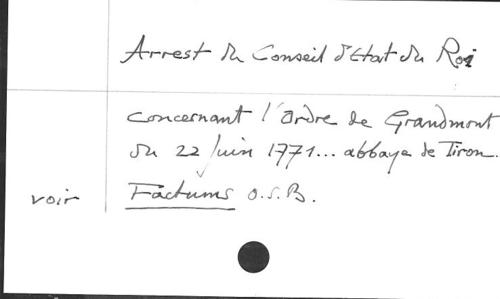 Arrest du Conseil d'Etat du Roi
concernant l'Ordre de Grandmont
du 22 juin 1771... abbaye de Tiron.
voir Factums O.S.B.